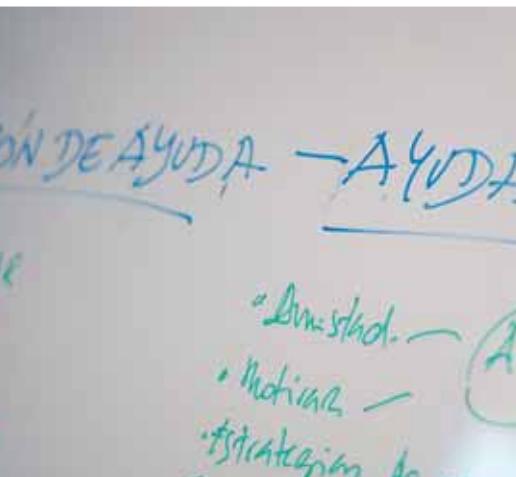 ÓN DE AYUDA – AYUDA
• Amistad. –
• Motivar –
• Estrategias